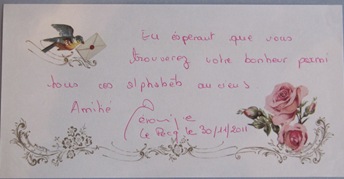 En espérant que vous
trouverez votre bonheur parmi
tous ces alphabets anciens
Amitié
Le Pecq le 30/11/2011